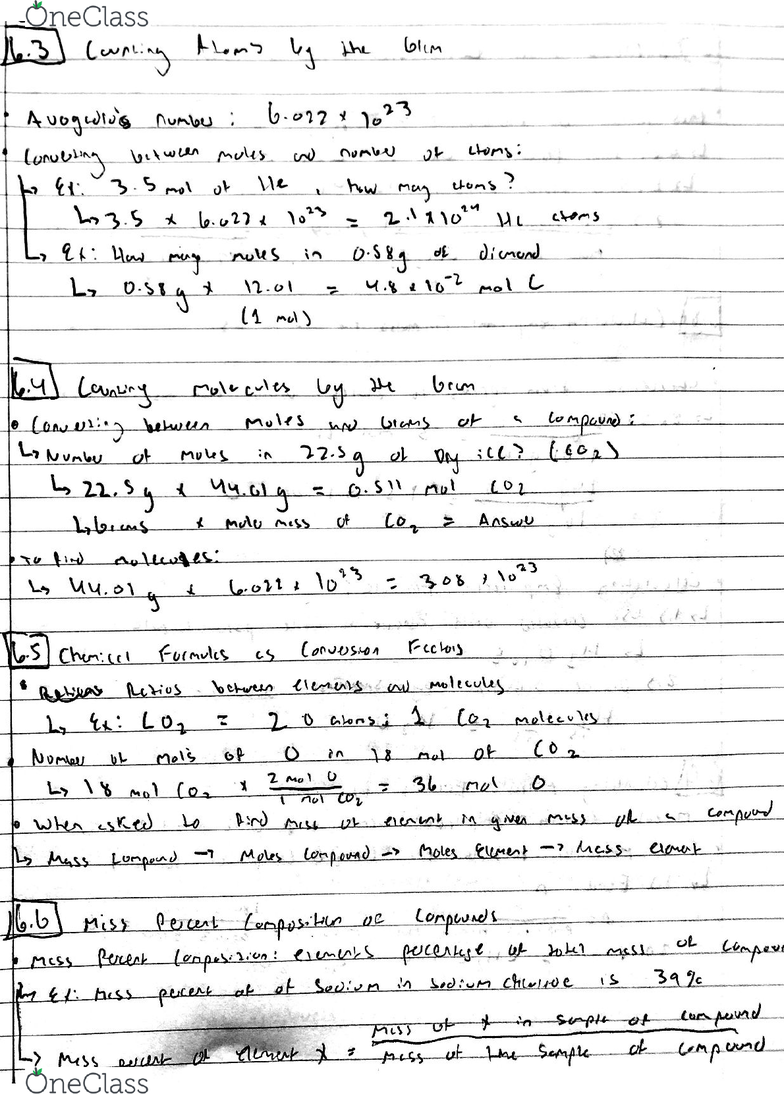 OneClass
6.3 Counting Atoms by the Gram
• Avogadro's number: 6.022 x 10^23
• Converting between moles and number of atoms:
↳ Ex: 3.5 mol of He, how many atoms?
↳ 3.5 x 6.022 x 10^23 = 2.1 x 10^24 He atoms
↳ Ex: How many moles in 0.58g of diamond
↳ 0.58g x 12.01 = 4.8 x 10^-2 mol C
(1 mol)
6.4 Counting molecules by the Gram
• Converting between moles and Grams of a compound:
↳ Number of moles in 22.5g of Dry ice? (CO2)
↳ 22.5g x 44.01g = 0.511 mol CO2
↳ Grams x molar mass of CO2 = Answer
• To find molecules:
↳ 44.01g x 6.022 x 10^23 = 3.08 x 10^23
6.5 Chemical Formulas as Conversion Factors
• Ratios between elements and molecules
↳ Ex: CO2 = 2 O atoms: 1 CO2 molecules
• Number of mols of O in 18 mol of CO2
↳ 18 mol CO2 x 2 mol O / 1 mol CO2 = 36 mol O
• When asked to find mass of element in given mass of a compound
↳ Mass compound → Moles compound → Moles Element → Mass element
6.6 Mass Percent Composition of Compounds
• Mass Percent Composition: elements percentage of total mass of compound
↳ Ex: Mass percent of of Sodium in sodium chloride is 39%
↳ Mass percent of element X = Mass of X in sample of compound / Mass of the sample of compound
OneClass